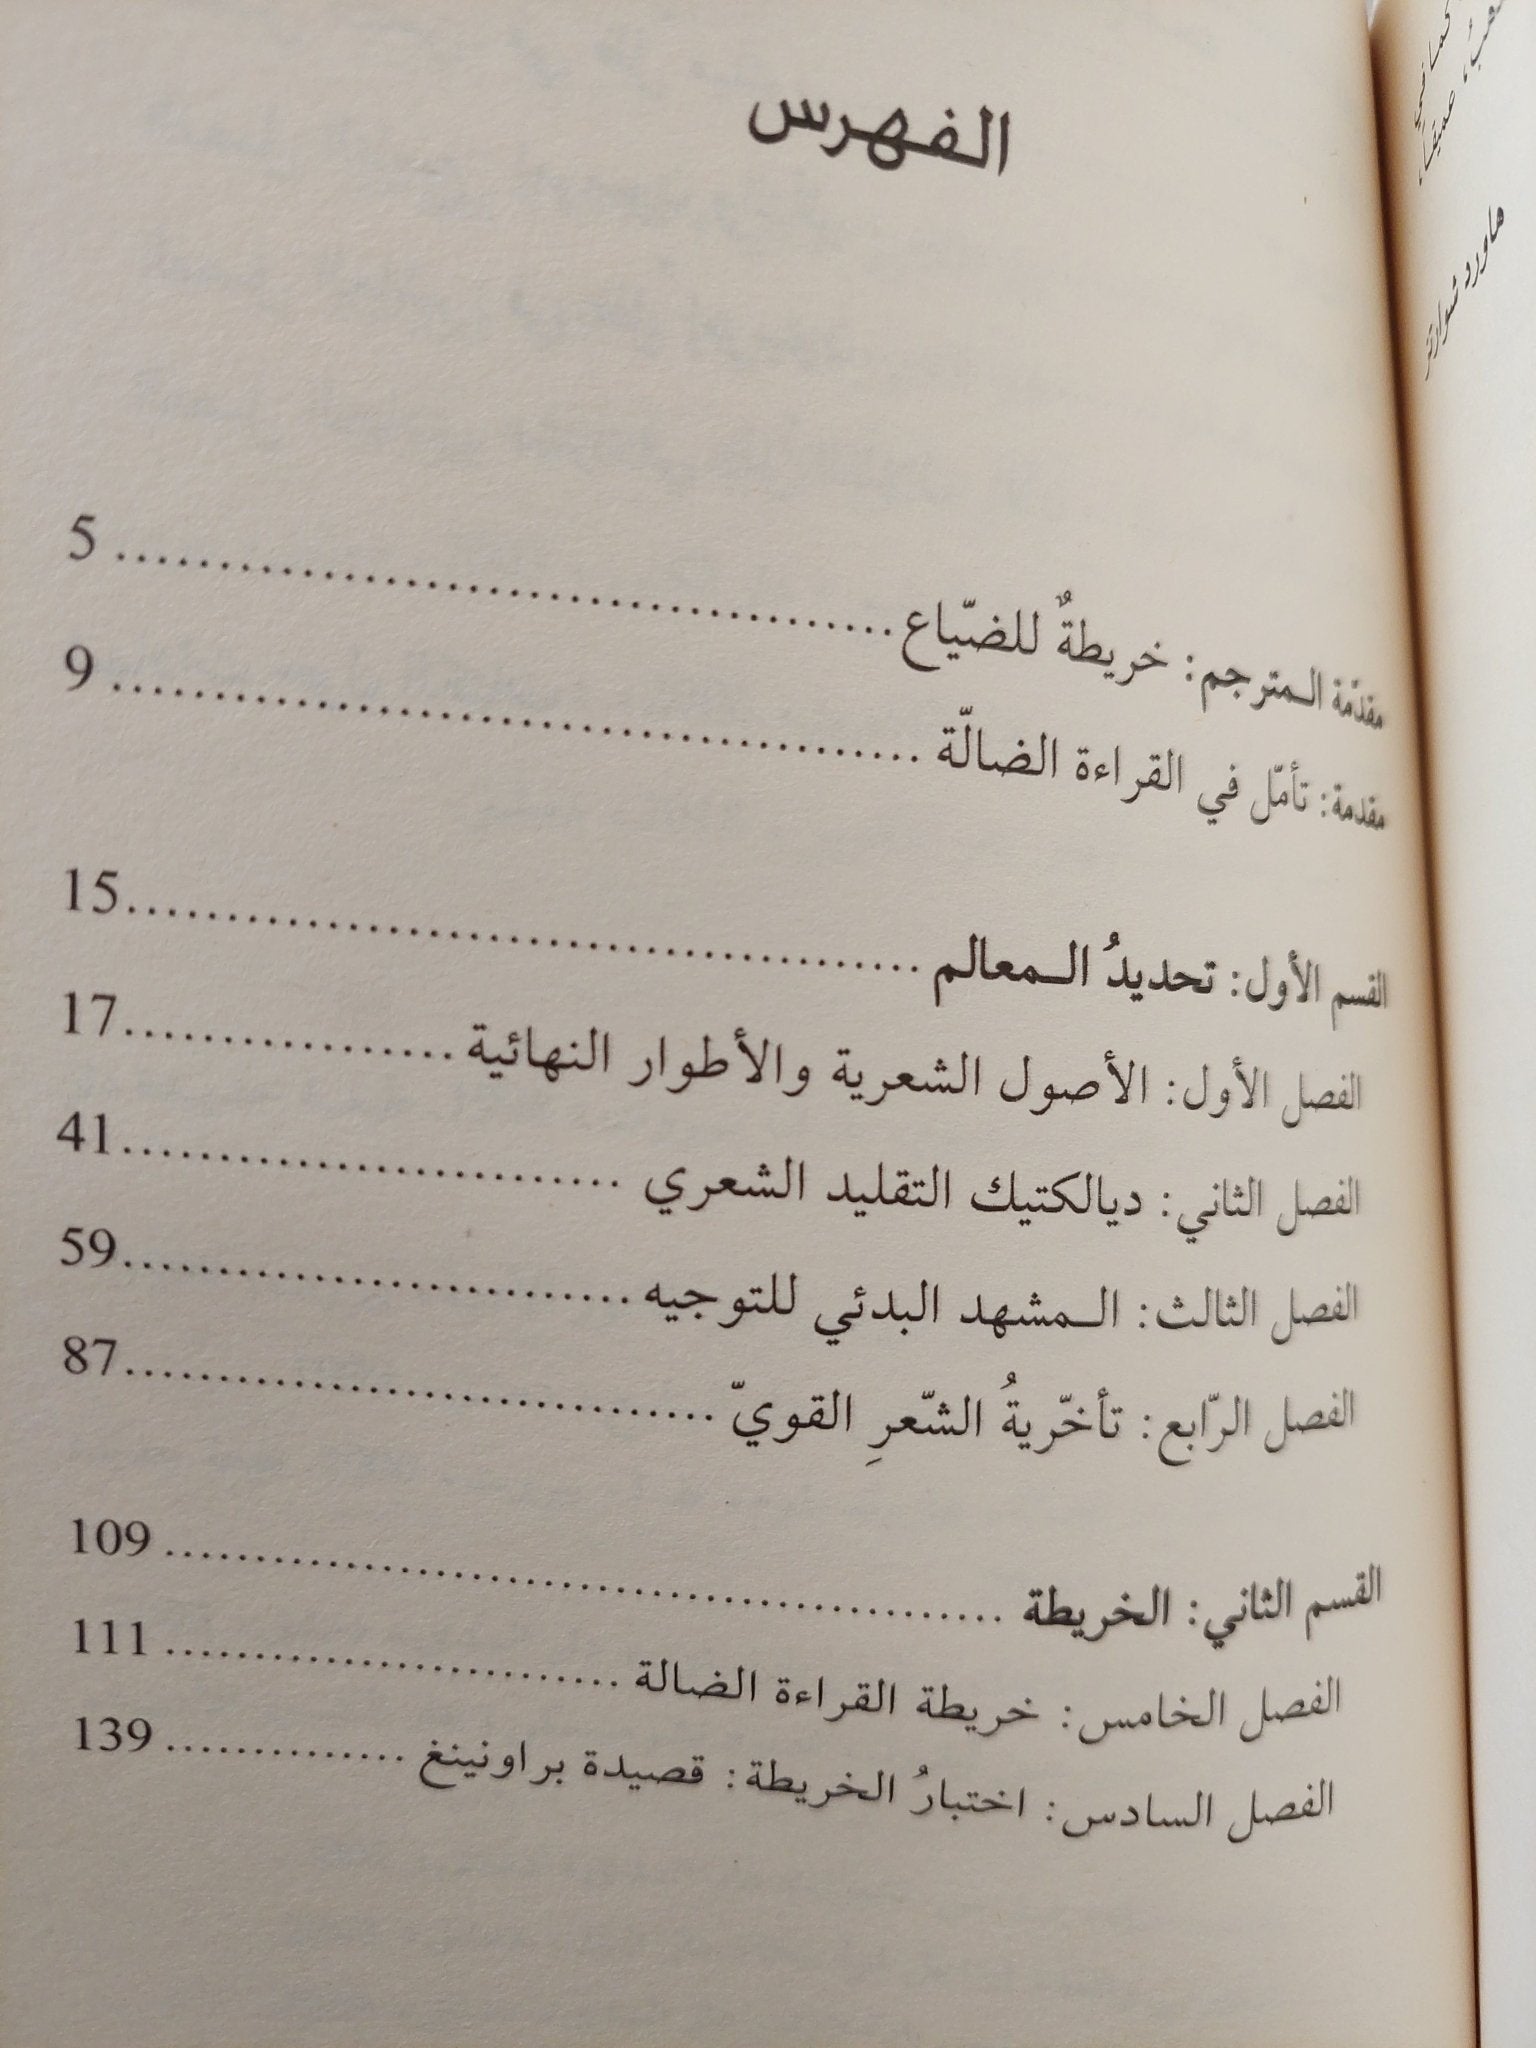 الفهرس
مقدّمة المترجم: خريطةٌ للضّياع 5
مقدمة: تأمّل في القراءة الضالّة 9
القسم الأول: تحديدُ المعالم 15
الفصل الأول: الأصول الشعرية والأطوار النهائية 17
الفصل الثاني: ديالكتيك التقليد الشعري 41
الفصل الثالث: المشهد البدئي للتوجيه 59
الفصل الرّابع: تأخّريةُ الشّعرِ القويّ 87
القسم الثاني: الخريطة 109
الفصل الخامس: خريطة القراءة الضالة 111
الفصل السادس: اختبارُ الخريطة: قصيدة براونينغ 139
كما في
عميقاً،
هاورد شوارتز